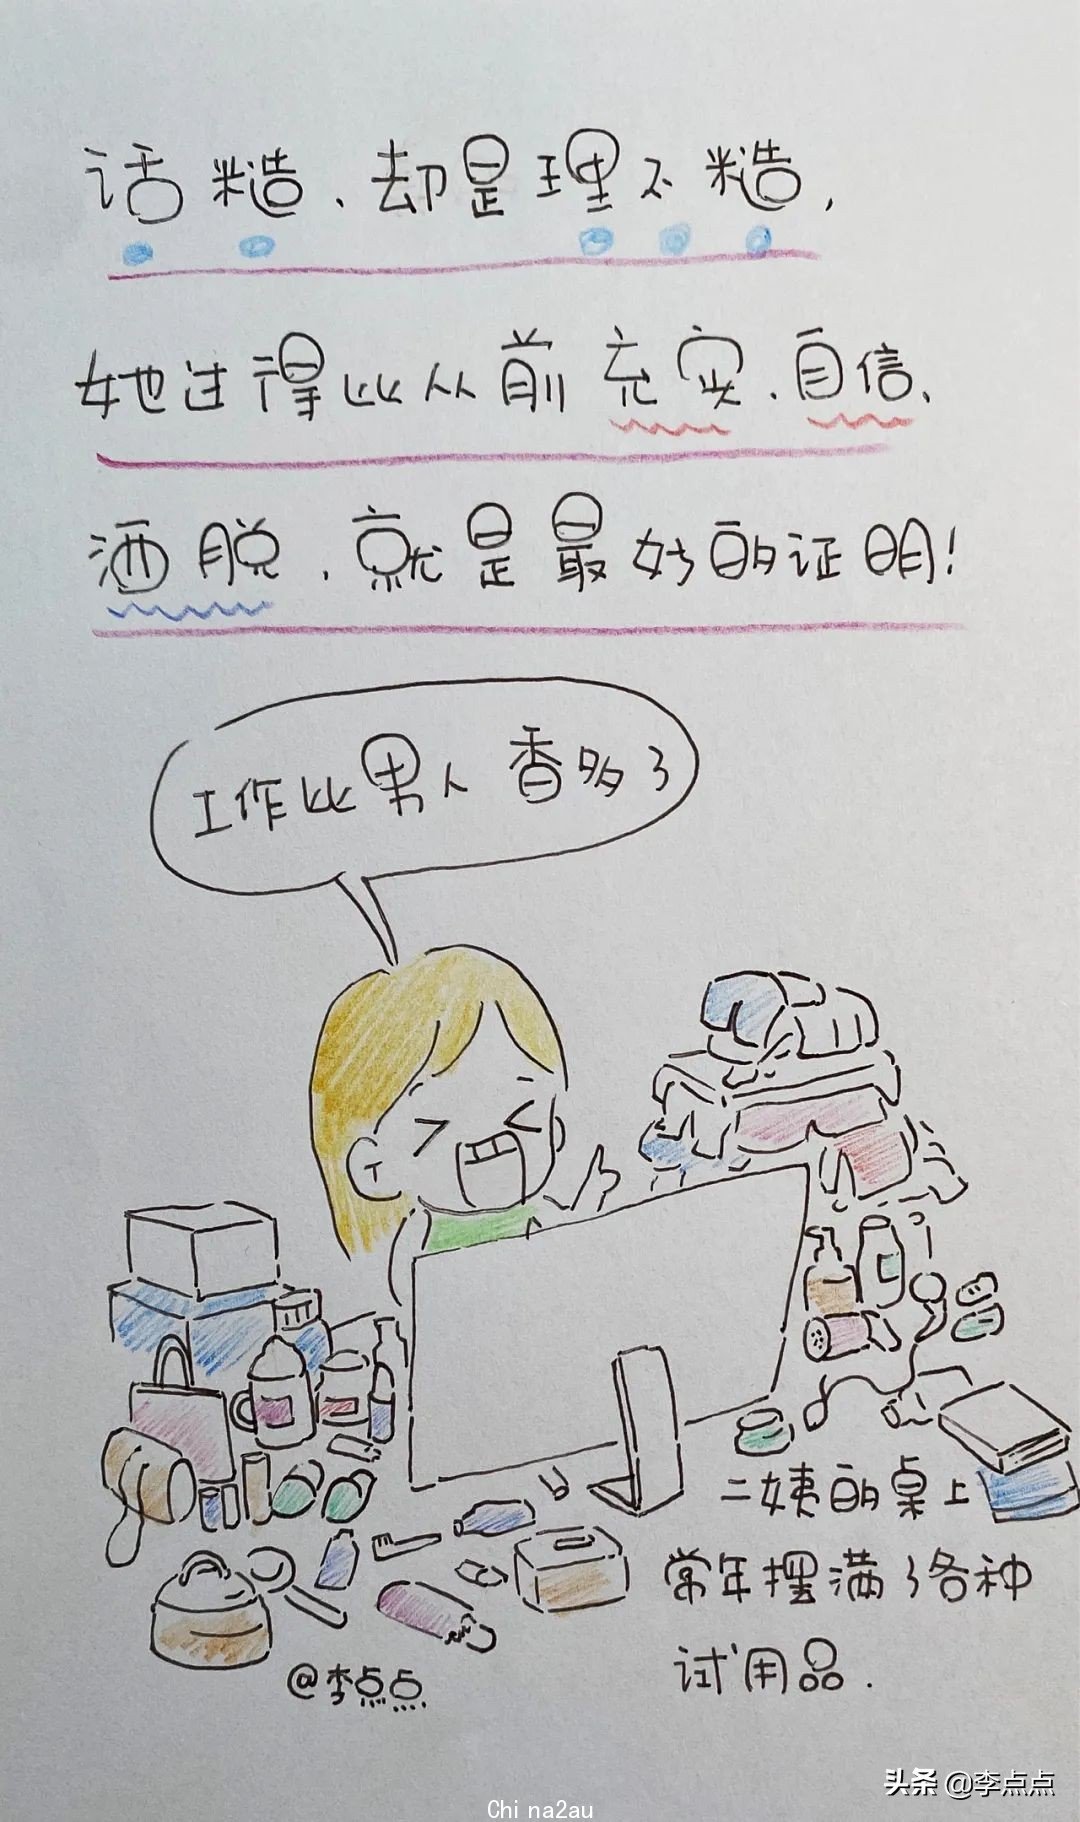 话糙、却是理不糙,
她过得比从前充实、自信、
洒脱、就是最好的证明!
工作比男人香多了
二姨的桌上
常年摆满了各种
试用品.
@李点点
头条 @李点点
China2au